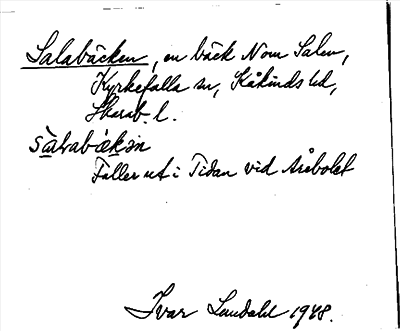 Salabäcken, en bäck N om Salen,
Kyrkefalla sn, Kåkinds hd,
Skarab. l.
Faller ut i Tidan vid Årebolet
Ivar Lundahl 1948.